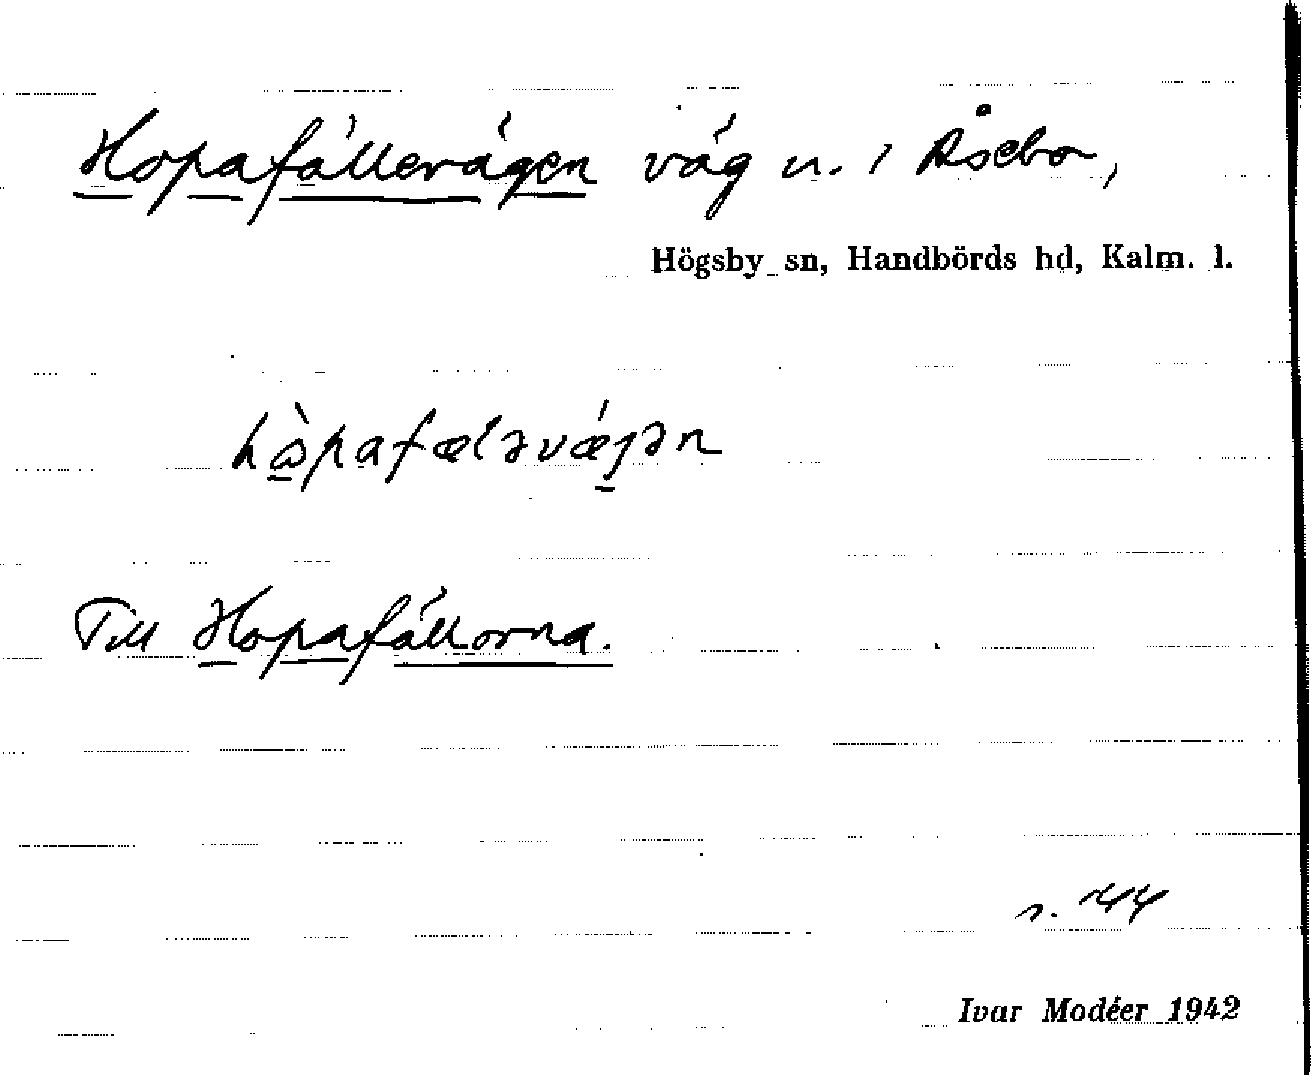 Hopafällevägen väg n. i Åsebo,
Högsby sn, Handbörds hd, Kalm. l.
hɷ̀pafæləvǽjən
Till Hopafällorna.
s. 44
Ivar Modéer 1942